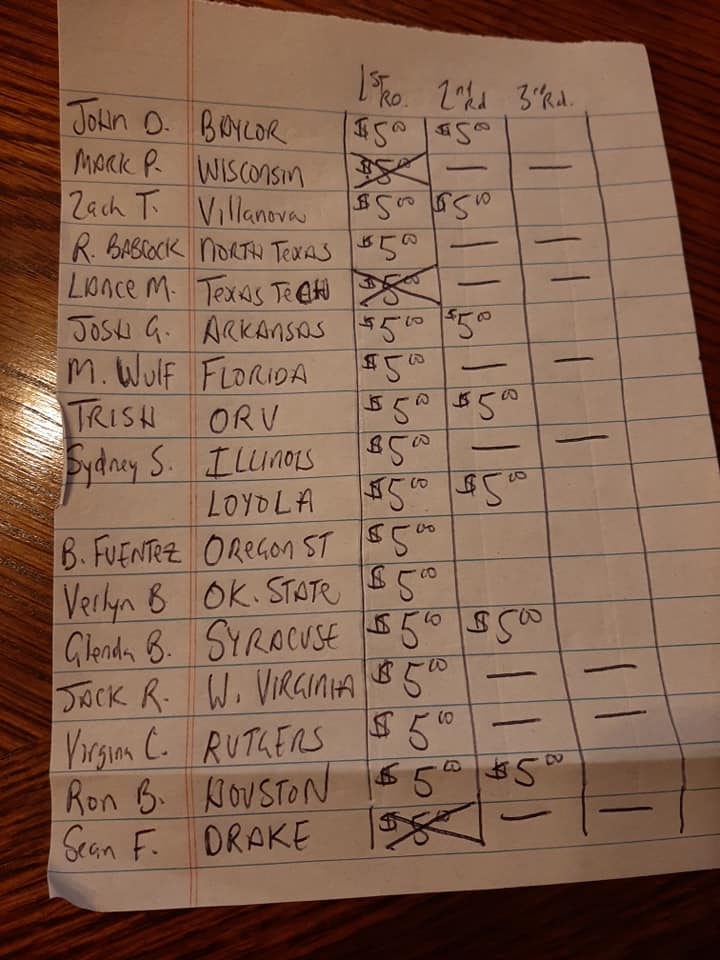 1ST RD. 2nd Rd 3rd Rd.
JOHN D. BAYLOR $5.00 $5.00
MARK P. WISCONSIN $5.00 — —
Zach T. Villanova $5.00 $5.00
R. BABCOCK NORTH TEXAS $5.00 — —
LANCE M. TEXAS TECH $5.00 — —
JOSH G. ARKANSAS $5.00 $5.00
M. Wulf FLORIDA $5.00 — —
TRISH ORU $5.00 $5.00
Sydney S. ILLINOIS $5.00 — —
LOYOLA $5.00 $5.00
B. FUENTEZ OREGON ST $5.00
Verlyn B OK. STATE $5.00
Glenda B. SYRACUSE $5.00 $5.00
JACK R. W. VIRGINIA $5.00 — —
Virgina C. RUTGERS $5.00 — —
Ron B. HOUSTON $5.00 $5.00
Sean F. DRAKE $5.00 — —